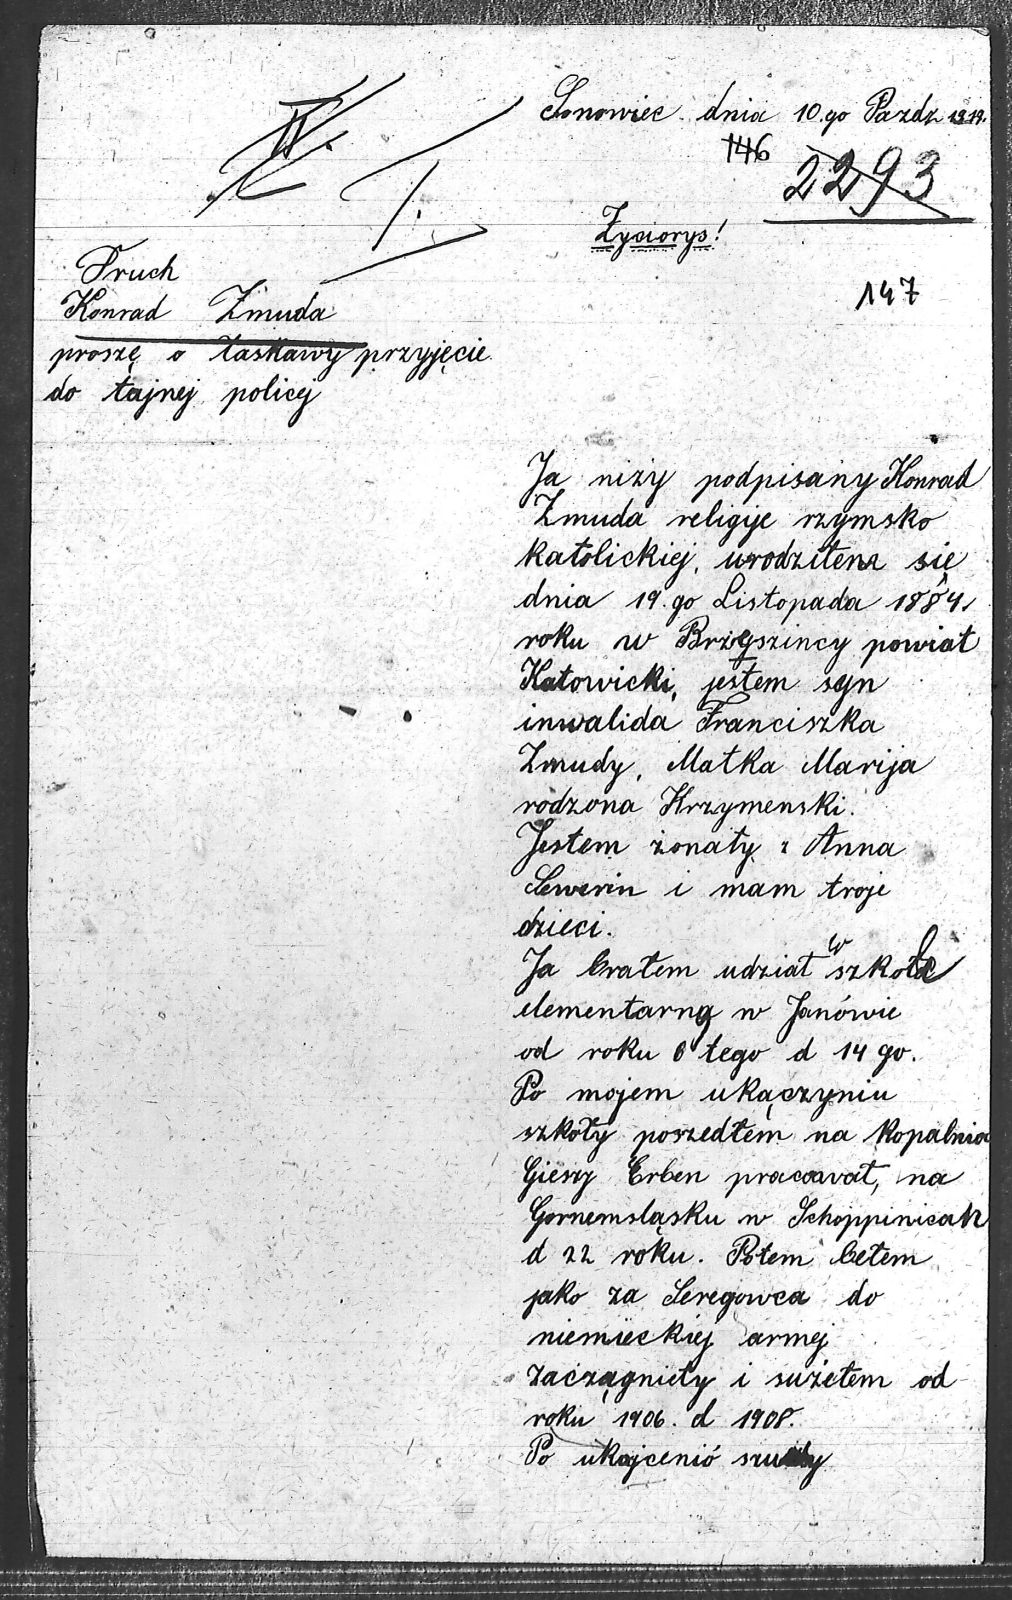 Sonowiec dnia 10.go Pazdz 1919.
146
2293
Życiorys!
147
Druch
Konrad Żmuda
proszę o łaskawy przyjęcie
do tájnej policej
Ja niży podpisány Konrad
Żmuda religije rzymsko
katolickiej, urodziłem się
dnia 19.go Listopada 1884
roku w Brzęszincy powiat
Katowicki, jestem syn
inwalida Franciszka
Zmudy, Matka Marija
rodzona Krzymenski.
Jestem żonaty z Anna
Sewerin i mam troje
dzieci.
Ja brałem udział w szkole
elementarną w Janówie
od roku 6 tego d 14 go.
Po mojem ukączyniu
szkoły poszedłem na kopalnia
Giesz Erben pracował, na
Gornemsląsku w Schoppinicah
d 22 roku. Potem bełem
jako za Seregowca do
niemieckiej armej
zaciągniety i sużełem od
roku 1906. d 1908.
Po ukajcenió